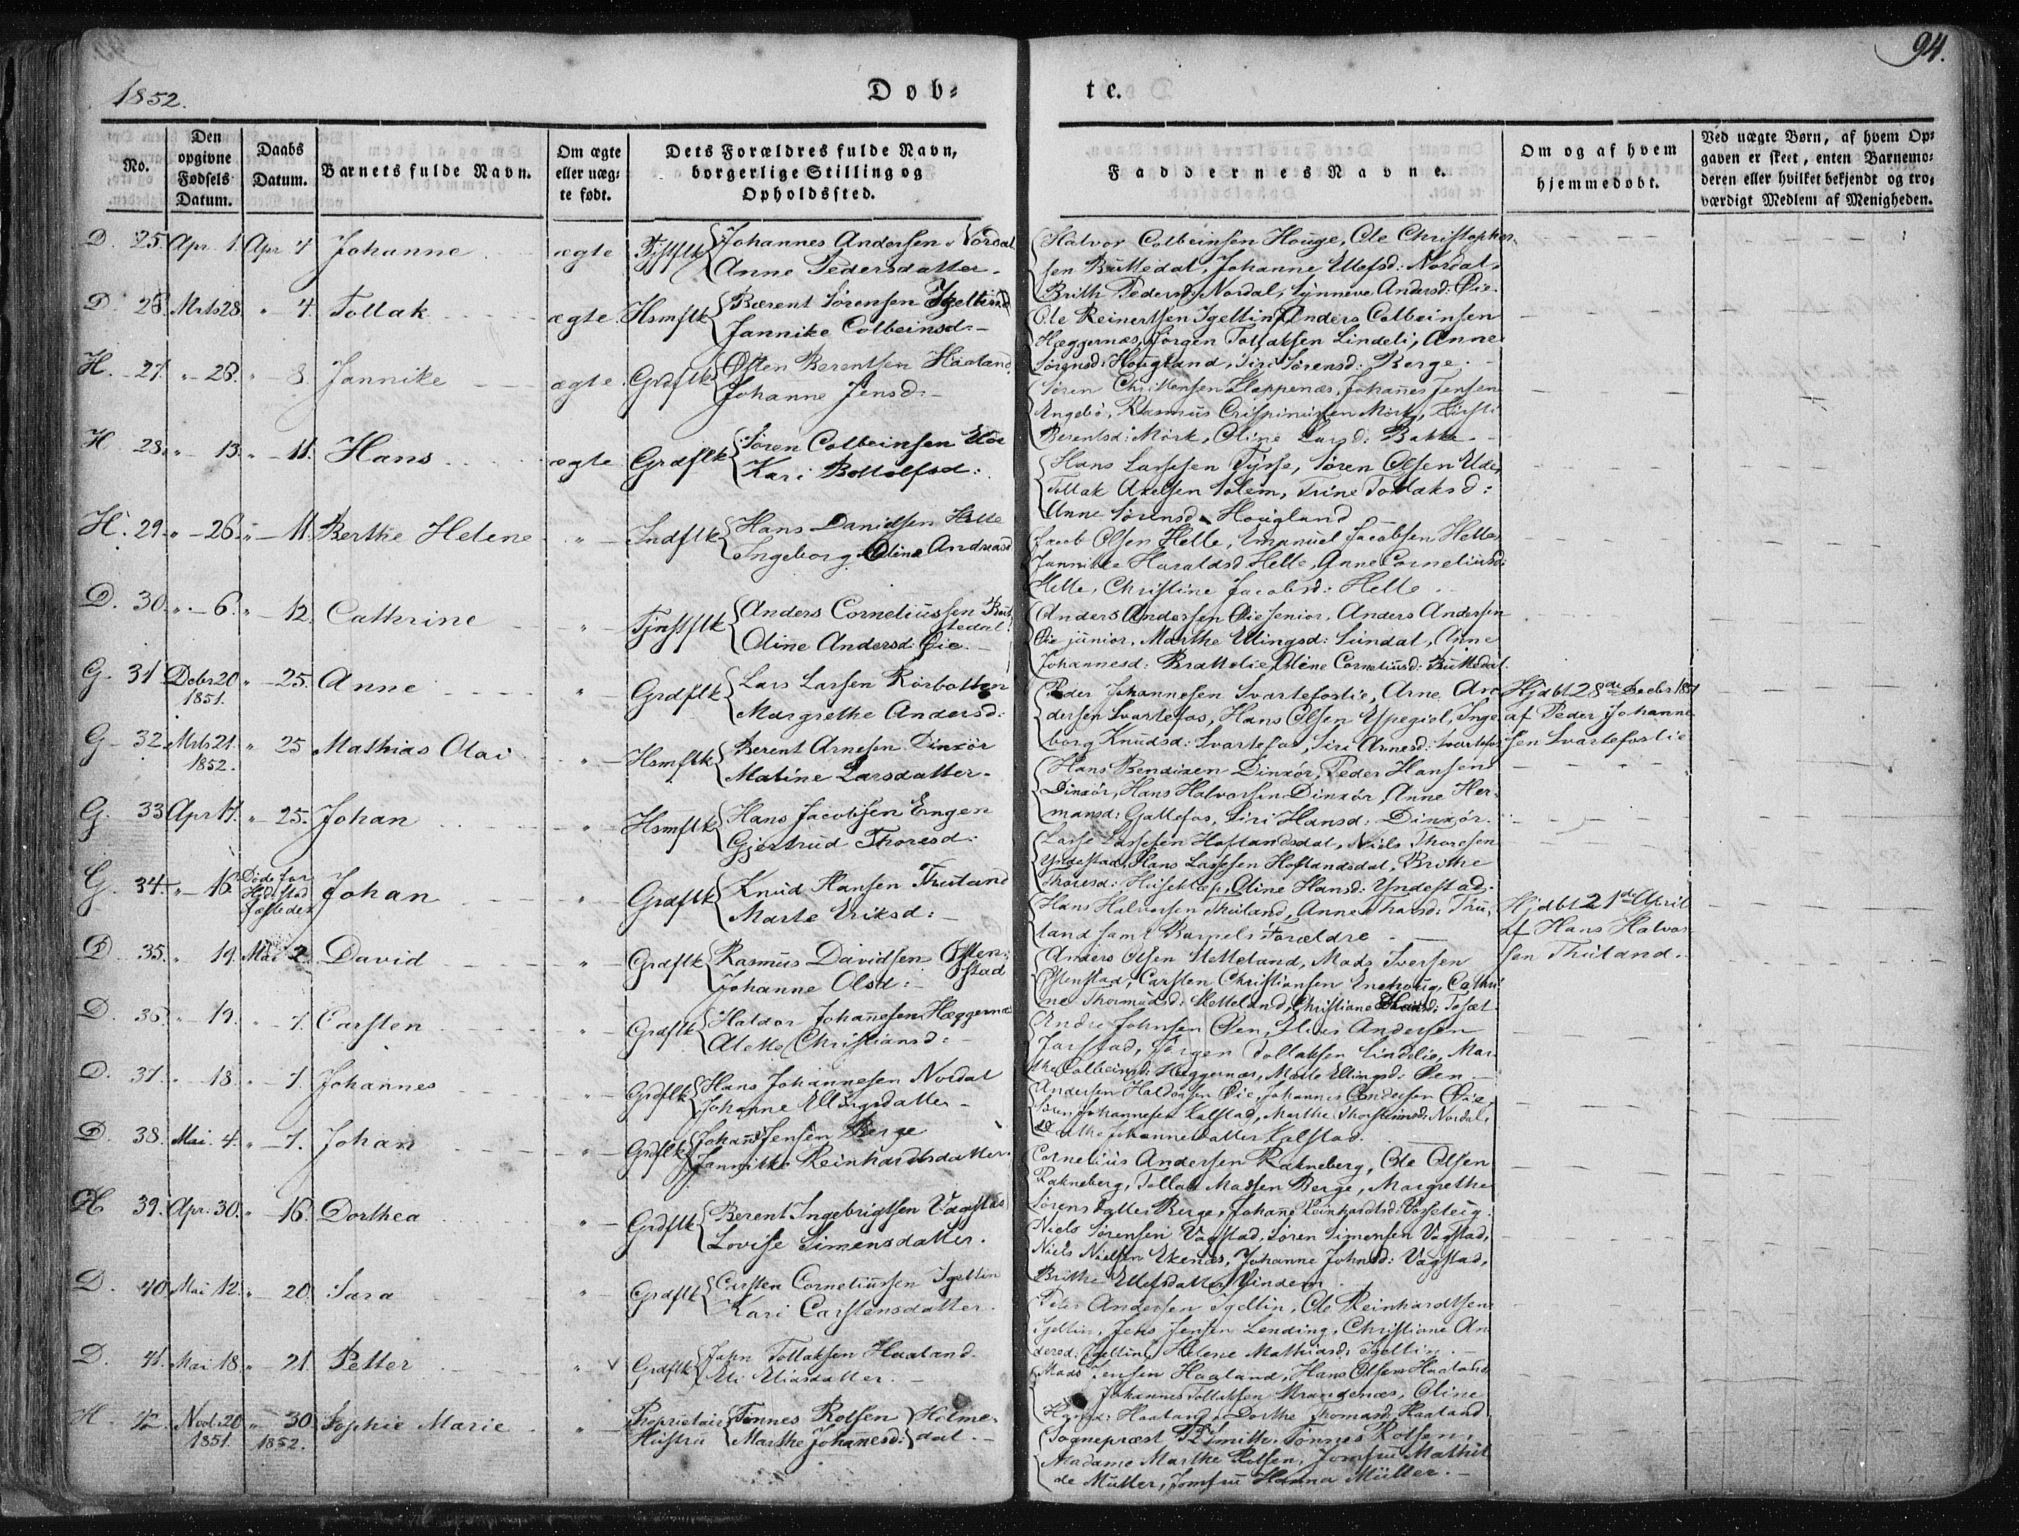 94.
1852.
Døb-
te.
No.
Den opgivne Fødsels Datum.
Daabs Datum.
Barnets fulde Navn.
Om ægte eller uægte født.
Dets Forældres fulde Navn, borgerlige Stilling og Opholdssted.
Faddernes Navne.
Om og af hvem hjemmedøbt.
Ved uægte Børn, af hvem Opgaven er skeet, enten Barnemoderen eller hvilket bekjendt og troværdigt Medlem af Menigheden.
D. 25. Apr 1. Apr 4 Johanne ægte Johannes Andersen Nordal
Anne Pedersdatter
Halvor Colbeinsen Houge, Ole Christopher-
sen Buttedal, Johanne Ellefsd: Nordal,
Brith Pedersd: Nordal, Synneve Andersd: Øie
D. 26. Mrts 28. " 4. Tollak ægte Hsmflk Bærent Sørensen Igeltind
Jannike Colbeinsd:
Ole Reinertsen Igeltin, Anders Colbeinsen
Hæggernæs, Jørgen Tollaksen Lindeli, Anne
Sørensd: Hougland, Siri Sørensd: Berge
H. 27. " 28. " 8. Jannike ægte Grdflk Østen Berentsen Haaland
Johanne Jensd:
Søren Christensen Klappenæs, Johannes Jensen
Engebø, Rasmus Crispinusen Mørk, Kirsti
Berentsd: Mørk, Oline Larsd: Bakke
H 28. " 13. " 11. Hans ægte Grdflk Søren Colbeinsen
Kari Bottolfsd:
Hans Larssen Tysse, Søren Olsen
Tollak Axelsen Solem, Trine Tollaksd:
Anne Sørensd. Hougland
H. 29. " 26. " 11. Berthe Helene " Indflk Hans Danidsen Helle
Ingeborg Oline Andreasd
Jacob Olsen Helle, Emanuel Jacobsen Helle,
Jannikke Haraldsd Helle, Anne Corneliusd:
Helle, Christine Jacobsd: Helle
D. 30. " 6. " 12. Cathrine " Tjnstflk Anders Corneliussen But-
tedal
Oline Andersd: Øie
Anders Andersen Øie senior, Anders Andersen
Øie junior, Marthe Ellingsd: Sundal, Anne
Johannesd: Brattelie, Oline Corneliusd: Buttedal
G. 31 Debr 20 1851. " 25. Anne " Grdflk Lars Larsen Rørbotten
Margrethe Andersd:
Peder Johannesen Svartefoslie, Arne An-
dersen Svartefos, Hans Olsen Ypegiol, Inge-
borg Knudsd: Svartefos, Siri Arnesd: Svartefos
Hjdbt 28de Decbr 1851
af Peder Johanne-
sen Svartefoslie
G 32. Mrts 21. 1852. " 25 Mathias Olai " Hsmflk Berent Arnesen Dinxør
Maline Larsdatter
Hans Bendixen Dinxør, Peder Hansen
Dinxør, Hans Halvorsen Dinxør, Anne Her-
mansd: Gjallefos, Siri Hansd: Dinxør.
G. 33 Apr 17. " 25. Johan " Hsmflk Hans Jacobsen Engen
Gjertrud Thoresd:
Lasse Lassesen Hoflandsdal, Niels Thoresen
Yndestad, Hans Lassesen Hoflandsdal, Brithe
Thoresd: Huseklep, Oline Hansd: Yndestad.
G. 34. " 16. Døde før Johan " Grdflk Knud Hansen Thuland
Marte Eriksd:
Hans Halvorsen Thuland, Anne Thoresd: Thu-
land samt Barnets Forældre
Hjdbt 21de April
af Hans Halvor-
sen Thuland.
D 35. " 19. Mai 2. David " Grdflk Rasmus Davidsen Østen-
stad
Johanne Olsd:
Anders Olsen Helleland, Mads Iversen
Østenstad, Carsten Christiansen Inehoug, Cathri-
ne Thormodsd: Helleland, Christiane
D. 36. " 19. " 7. Carsten " Grdflk Haldor Johannesen Hæggernæs
Alette Christiansd:
Andre Johnsen Øen, Elias Andersen
Jarstad, Jørgen Tollaksen Lindelie, Mar-
the Colbeinsd: Hæggernæs, Marte Ellingsd: Øen
D. 37. " 18. " 7. Johannes Grdflk Hans Johannesen Nordal
Johanne Ellingsdatter
Andersen Haldorsen Øie, Johannes Andersen Øie,
Johannesen Kalstad, Marthe Thorsteinsd: Nordal,
Johannesdatter Kalstad.
D. 38. Mai 4. " 7. Johan " Grdflk Johans Jensen Berge
Jannikke Reinhardtsdatter.
Cornelius Andersen Rakneberg, Ole Olsen
Rakneberg, Tollak Madsen Berge, Margrethe
Sørensdatter Berge, Johane Reinhardtsd: Vasseteig.
H 39. Apr: 30. " 16. Dorthea " Grdflk Berent Ingebrigtsen Vagstad
Lovise Simensdatter.
Niels Sørensen Vagstad, Søren Simonsen Vagstad,
Niels Nielsen Ekenæs, Johanne Johnsd: Vagstad,
Brithe Ellefsdatter Vindem
D. 40. Mai 12. " 20. Sara " Grdflk Carsten Corneliussen Igeltin
Kari Carstensdatter.
Peter Andersen Igeltin, Ole Reinhardtsen
Igeltin, Jens Jensen Lending, Christiane An-
dersd: Igeltin, Helene Mathiasd: Igeltin.
D. 41. Mai 18. " 21. Petter " Grdflk John Tollaksen Haaland.
Eli Eliasdatter.
Mads Jensen Haaland, Hans Olsen Haaland
Johannes Tollaksen Vrangenæs, Oline
Hansd: Haaland, Dorthe Thomasd: Haaland
H. 42 Novbr 20 1851. " 30. 1852. Sophie Marie " Proprietair Tønnes Rolfsen Holme-
Hustru Marthe Johannesd: dal.
Sognepræst Smith, Tønnes Rolfsen,
Madame Marthe Rolfsen, Jomfru Mathil-
de Müller, Jomfru Hanna Müller.